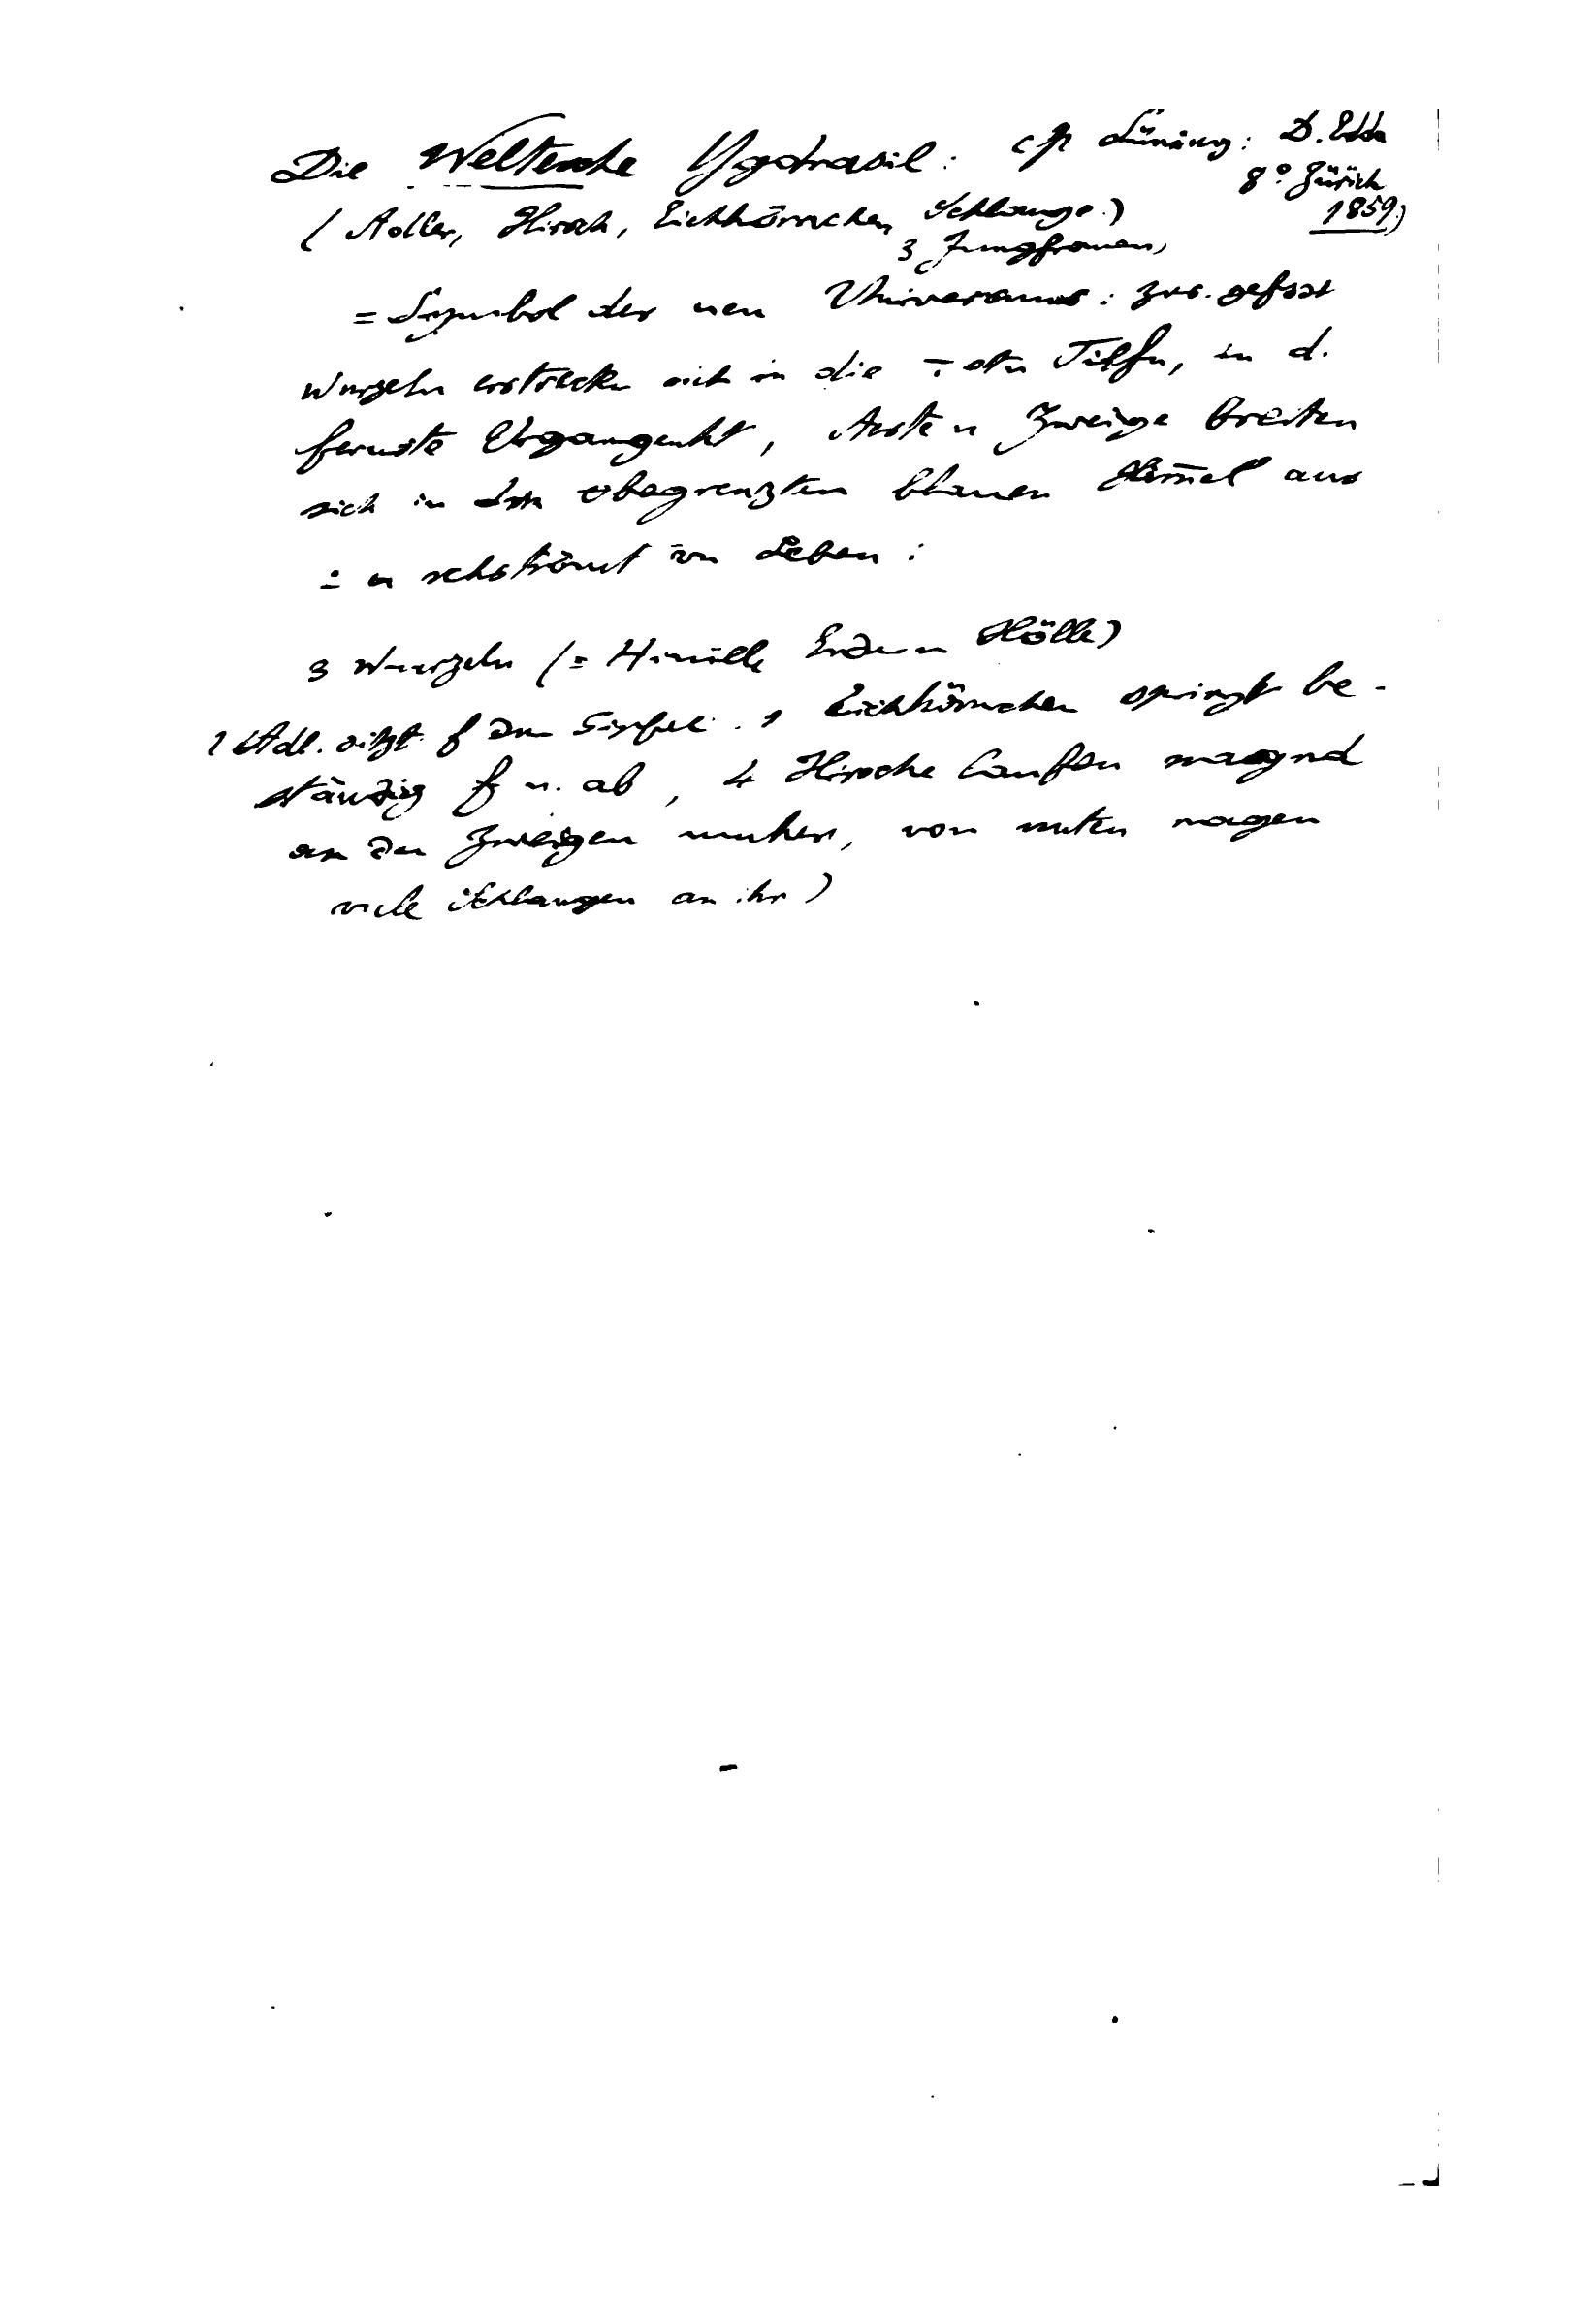 Die Weltesche Ygdrasil: cfr Lüning: D. Edda
8° Zürich
1859)
(Adler, Hirsch, Eichhörnchen, Schlange.)
3 Jungfrauen,
= Symbol des Universums: zus. gefasst
Wurzeln erstrecken sich in die Tiefen, in d.
fernste Vrgangenht, Aeste u Zweige breiten
sich in den begrenzten blauen Himmel aus
u Leben:
3 Wurzeln (= Erde u Hölle)
1 Adl. sitzt f dm Gipfel. 1 Eichhörnchen springt be-
ständig f u. ab, 4 Hirsche laufen nagnd
an den Zweigen umher, von unten nagen
viele Schlangen an ihr)